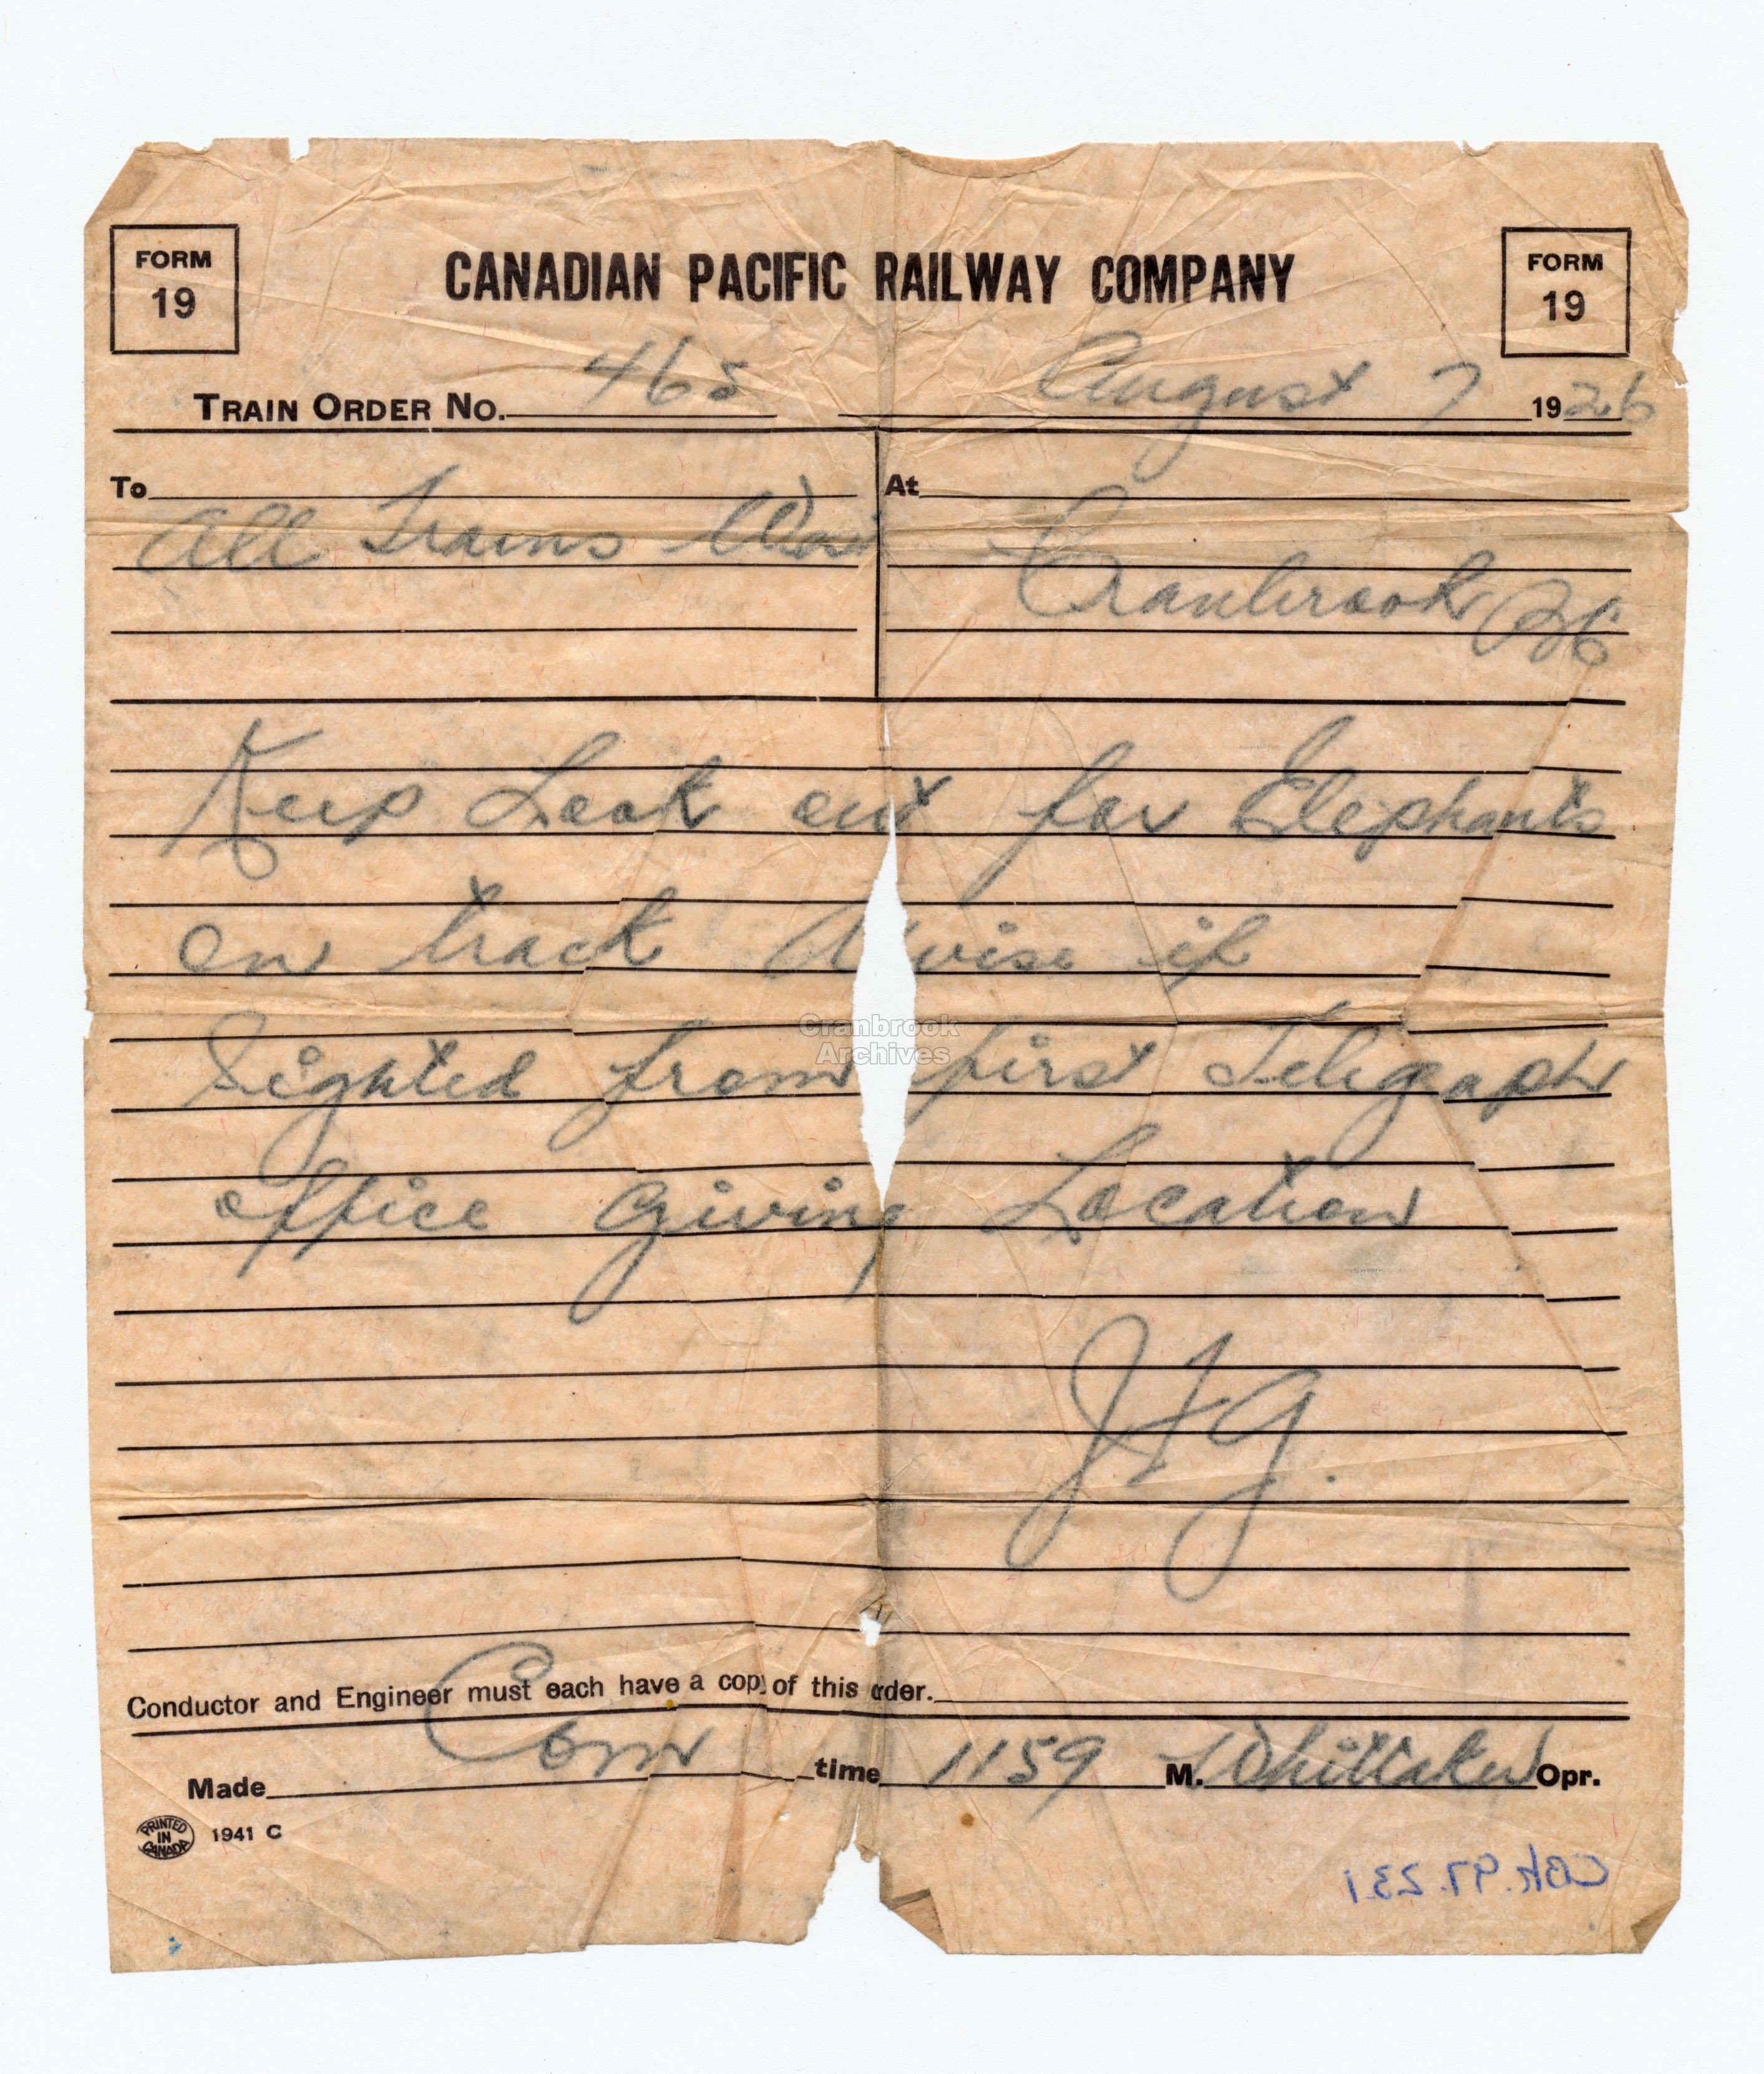 FORM 19
CANADIAN PACIFIC RAILWAY COMPANY
FORM 19
TRAIN ORDER No. 465 August 7 1926
To At
All Trains West
Cranbrook BC
Keep Look out for Elephants
on track Advise if
Sighted from first Telegraph
office giving Location
Cranbrook
Archives
JHG.
Conductor and Engineer must each have a copy of this order.
Made Com time 1159 M. Whittaker Opr.
PRINTED IN CANADA 1941 C
CBK.97.23.1